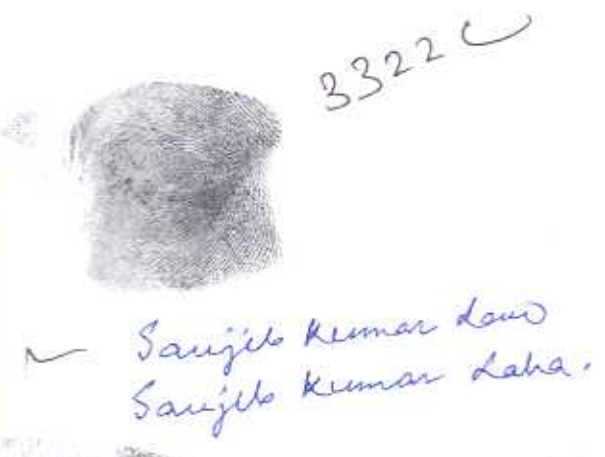 3322
Sanjib Kumar
Sanjib Kumar Laha.